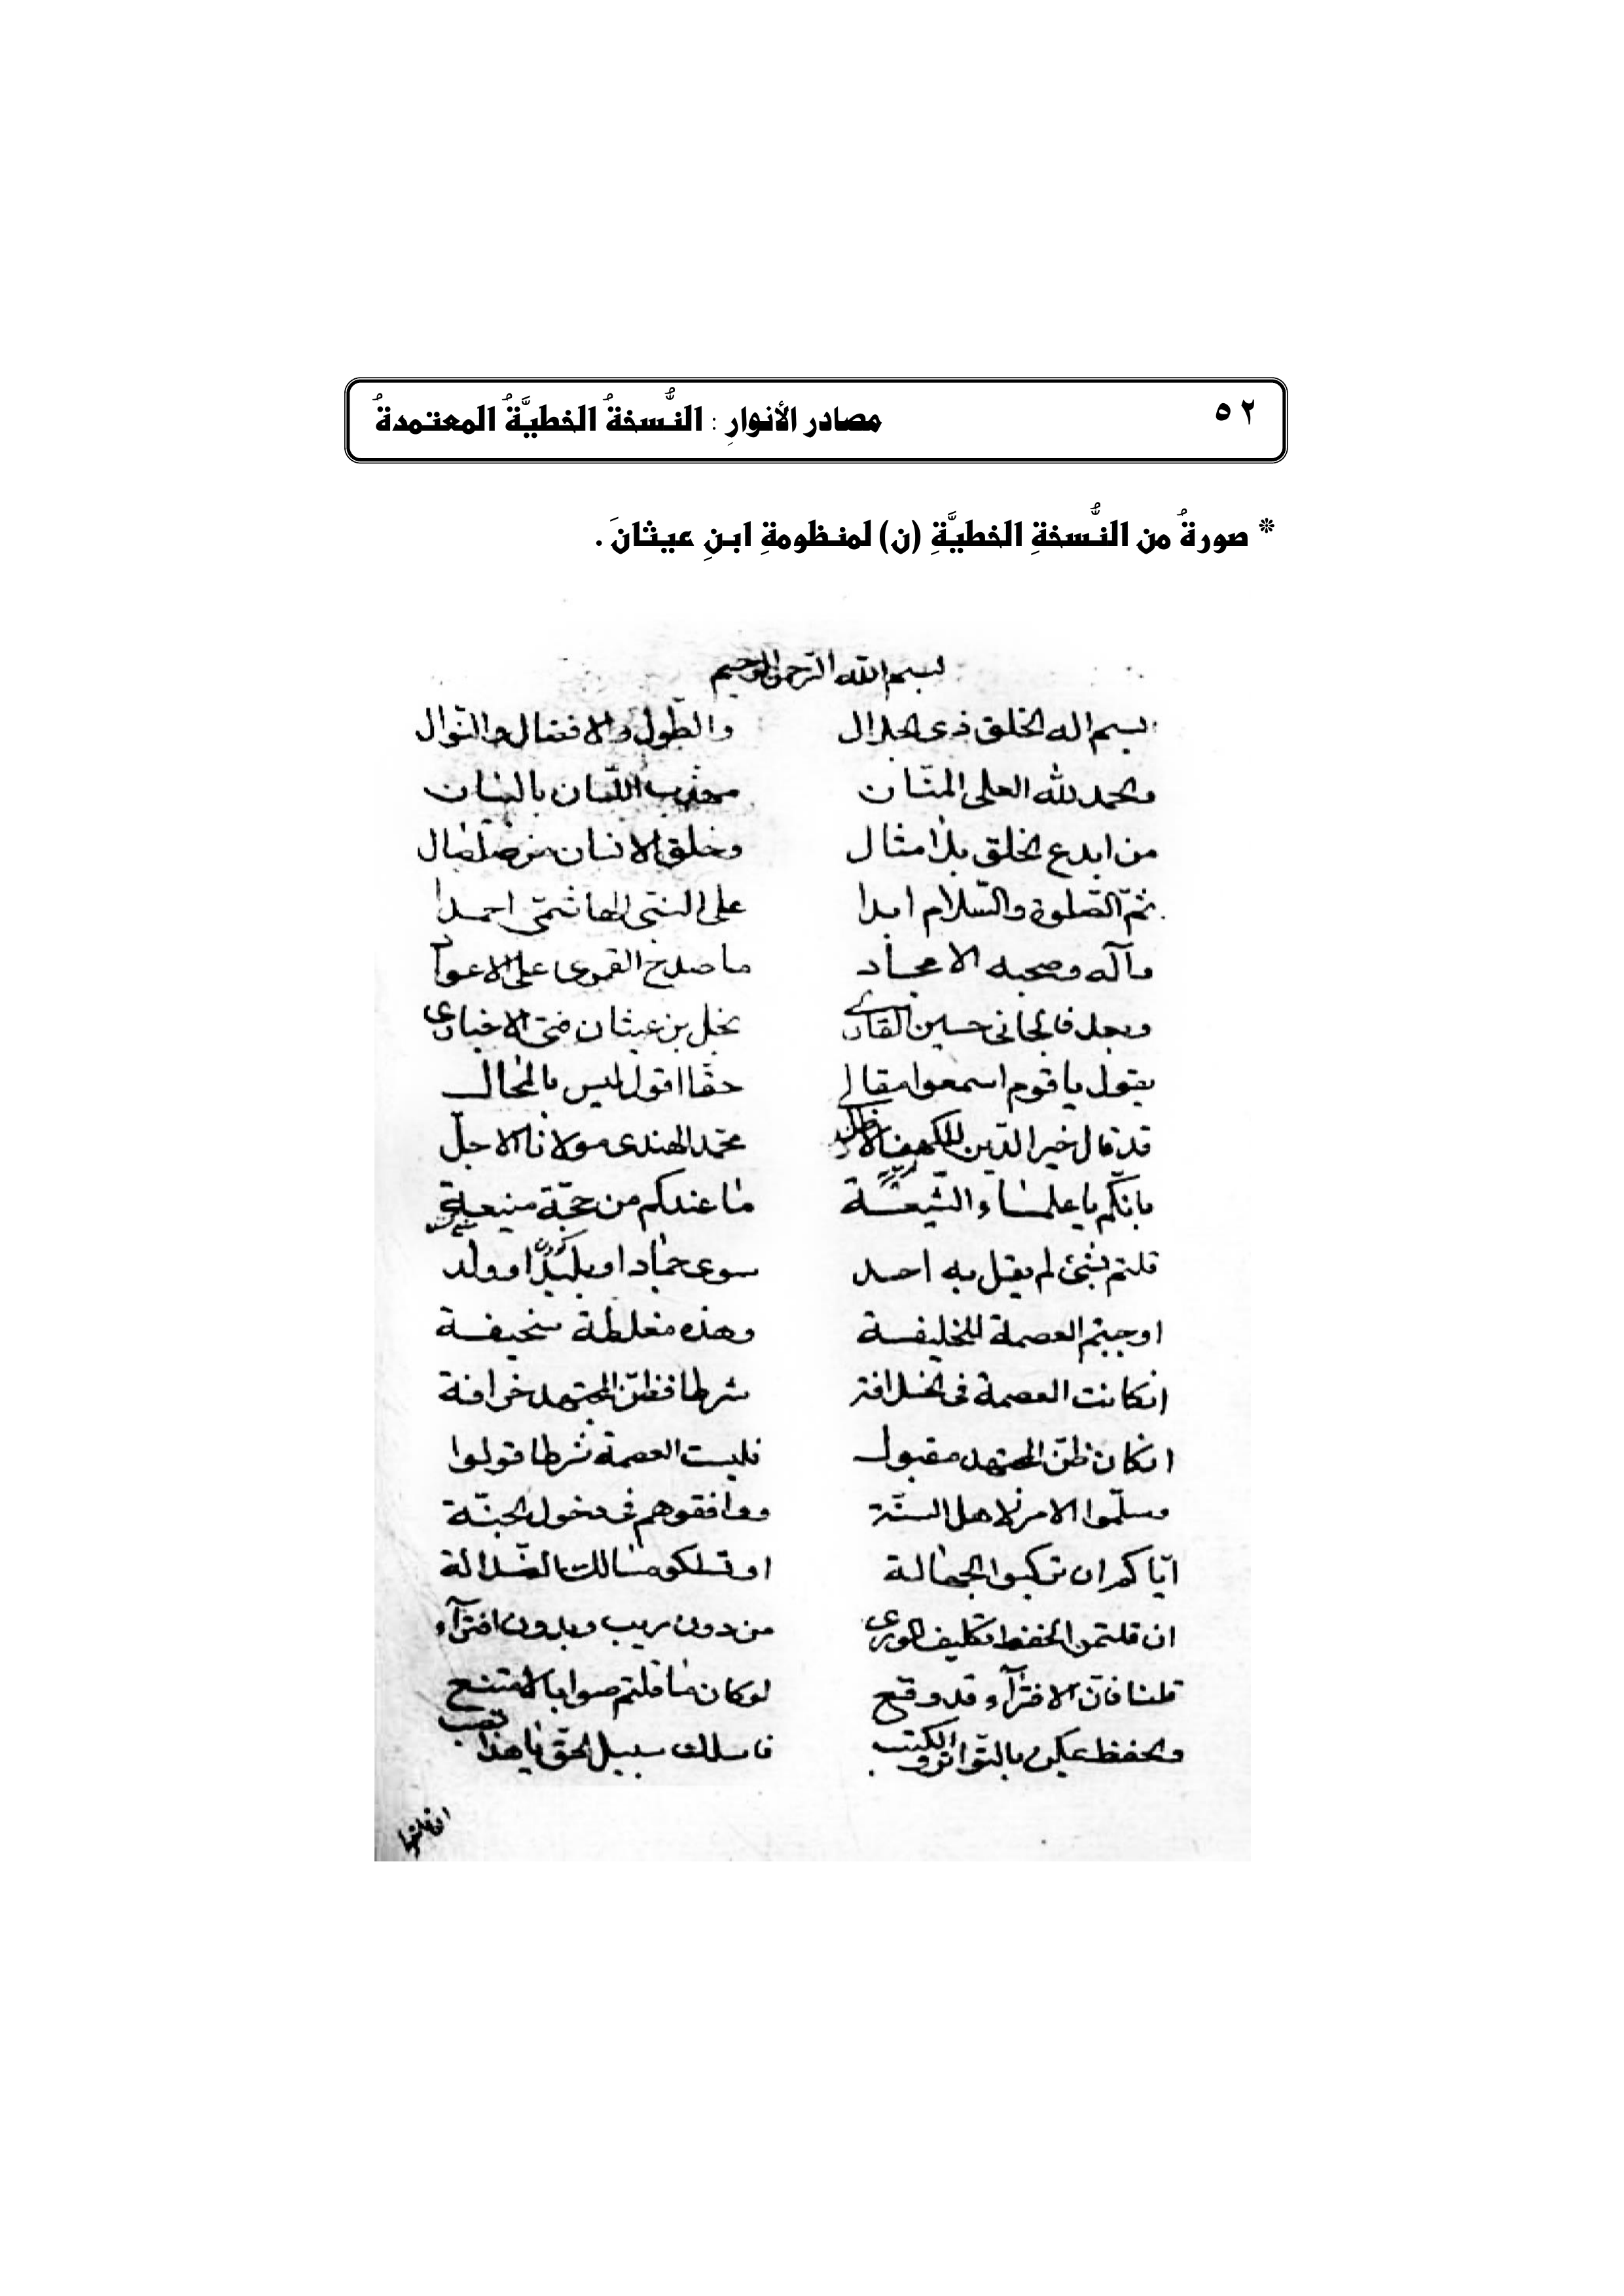 ٥٢ مصادر الأنوارِ : النُّسخةُ الخطيَّةُ المعتمدةُ
* صورةُ من النُّسخةِ الخطيَّةِ (ن) لمنظومةِ ابنِ عيثانَ .
بسم الله الرحمن الرحيم
بسم اله الخلق ذى الجلال والطّول والافضال والنّوال
والحمد لله العلى المنّان مهذب اللسان بالبنان
من ابدع الخلق بلا امثال وخلق الانسان من صلصال
ثمّ الصّلوة والسّلام ابدا على النبىّ الهاشمىّ احمدا
وآله وصحبه الامجاد ما صدح القمرى على الاعواد
وبعد فالجانى حسين القارى نجل بن عيثان فتى الاخبارى
يقول يا قوم اسمعوا مقالي حقّا اقول ليس بالمحال
قد قال خير الدّين محمّد الهندى مولانا الاجلّ
بانّكم يا علماء الشّيعة ما عندكم من حجّة منيعة
قلتم بشئ لم يقل به احد سوى حماد او بليد او ولد
اوجبتم العصمة للخليفة وهذه مغلطة سخيفة
انكانت العصمة فى الخلافة شرطا فظنّ المجتهد خرافة
انكان ظنّ المجتهد مقبول فليست العصمة شرطا قولوا
وسلّموا الامر لاهل السنّة ووافقوهم فى دخول الجنّة
ايّاكم ان تركبوا الجهالة او تسلكو مسالك الضّلالة
ان قلتموا لحفظ تكليف الورى من دون ريب وبدون افترآء
قلنا فانّ الافترآء قد وقع لو كان ما قلتم صوابا لامتنع
والحفظ يمكن بالتّواتر والكتب فاسلك سبيل الحقّ يا هذا تصب